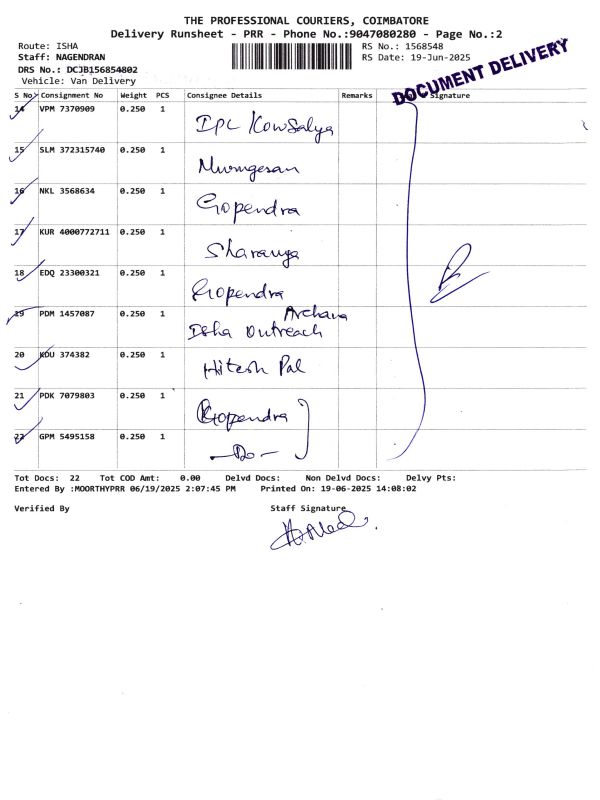 THE PROFESSIONAL COURIERS, COIMBATORE
Delivery Runsheet - PRR - Phone No.:9047080280 - Page No.:2
Route: ISHA RS No.: 1568548
Staff: NAGENDRAN RS Date: 19-Jun-2025
DRS No.: DCJB156854802
Vehicle: Van Delivery
DOCUMENT DELIVERY
S No Consignment No Weight PCS Consignee Details Remarks Signature
14 VPM 7370909 0.250 1 IPC Kowsalya
15 SLM 372315740 0.250 1 Murugesan
16 NKL 3568634 0.250 1 Gopendra
17 KUR 4000772711 0.250 1 Sharanya
18 EDQ 23300321 0.250 1 Gopendra
19 PDM 1457087 0.250 1 Archana
Isha Outreach
20 KDU 374382 0.250 1 Hitesh Pal
21 PDK 7079803 0.250 1 Gopendra
22 GPM 5495158 0.250 1 —Do—
Tot Docs: 22 Tot COD Amt: 0.00 Delvd Docs: Non Delvd Docs: Delvy Pts:
Entered By :MOORTHYPRR 06/19/2025 2:07:45 PM Printed On: 19-06-2025 14:08:02
Verified By Staff Signature